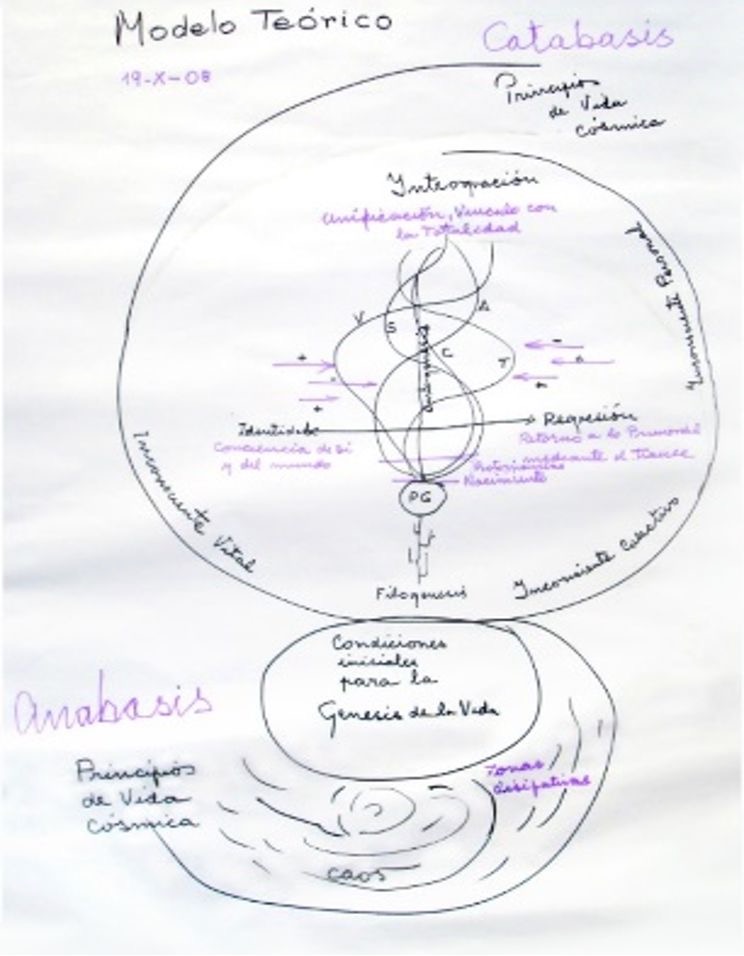 Modelo Teórico
Catabasis
19-X-08
Principios
de Vida
cósmica
Integración
Unificación, Vinculo con
la Totalidad
Inconsciente Personal
V
S
A
C
T
+
-
+
Identidad
Regresión
Conciencia de Si
y del mundo
Retorno a lo Primordial
mediante el Trance
Nacimiento
PG
Inconsciente Vital
Inconsciente Colectivo
Filogenesis
Condiciones
iniciales
para la
Genesis de la Vida
Anabasis
Principios
de Vida
cósmica
zonas
disipativas
caos